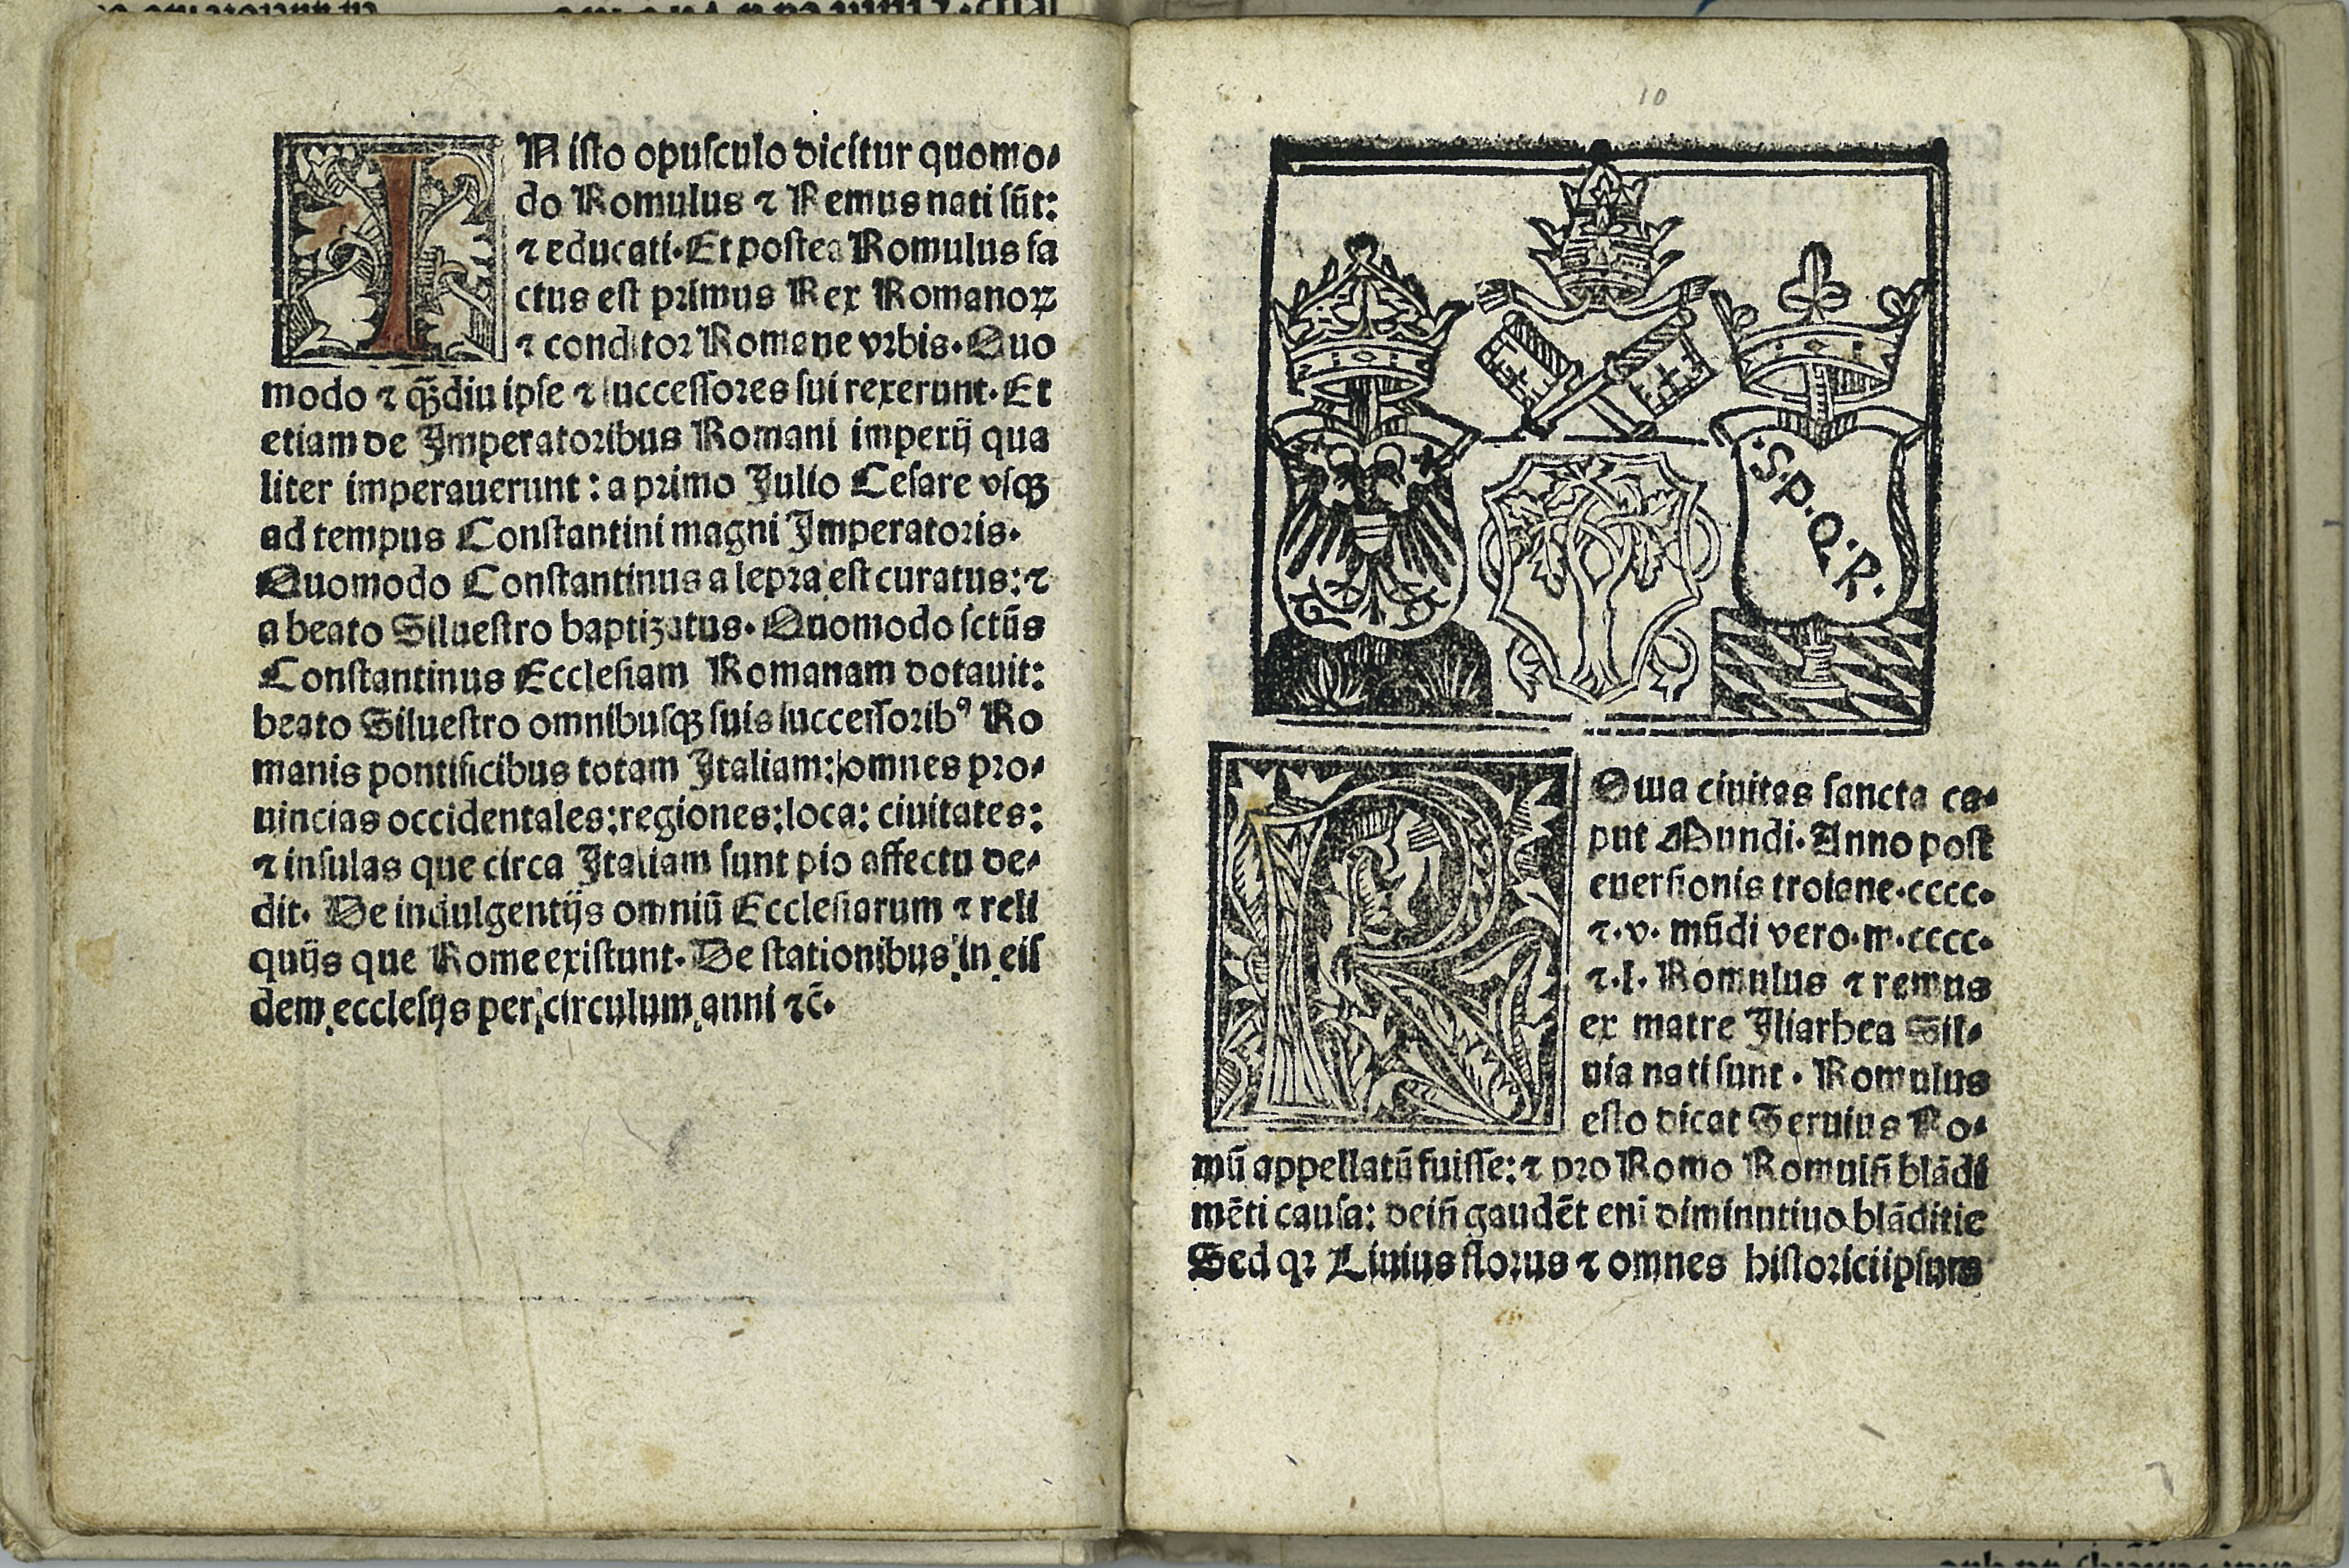 IN isto opusculo dicitur quomo⸗
do Romulus ⁊ Remus nati sūt:
⁊ educati. Et postea Romulus fa
ctus est primus Rex Romanoꝝ
⁊ conditor Romane vrbis. Quo
modo ⁊ qȝdiu ipse ⁊ successores sui rexerunt. Et
etiam de Imperatoribus Romani imperij qua
liter imperauerunt: a primo Julio Cesare vsqȝ
ad tempus Constantini magni Imperatoris.
Quomodo Constantinus a lepra est curatus: ⁊
a beato Siluestro baptizatus. Quomodo sctūs
Constantinus Ecclesiam Romanam dotauit:
beato Siluestro omnibusqȝ suis successoribꝰ Ro
manis pontificibus totam Italiam: omnes pro⸗
uincias occidentales: regiones: loca: ciuitates:
⁊ insulas que circa Italiam sunt pio affectu de⸗
dit. De indulgentijs omniū Ecclesiarum ⁊ reli
quijs que Rome existunt. De stationibus in eis
dem ecclesijs per circulum anni ⁊c̄.
10
.S.P.Q.R.
ROma ciuitas sancta ca⸗
put Mundi. Anno post
euersionis troiane.cccc.
⁊.v. mūdi vero.m.cccc.
⁊.l. Romulus ⁊ remus
ex matre Iliarhea Sil⸗
uia nati sunt. Romulus
esto dicat Seruius Ro⸗
mū appellatū fuisse: ⁊ pro Romo Romulū blādi
mēti causa: dein̄ gaudēt eni diminutiuo blāditie
Sed qꝛ Liuius florus ⁊ omnes historici ipsum